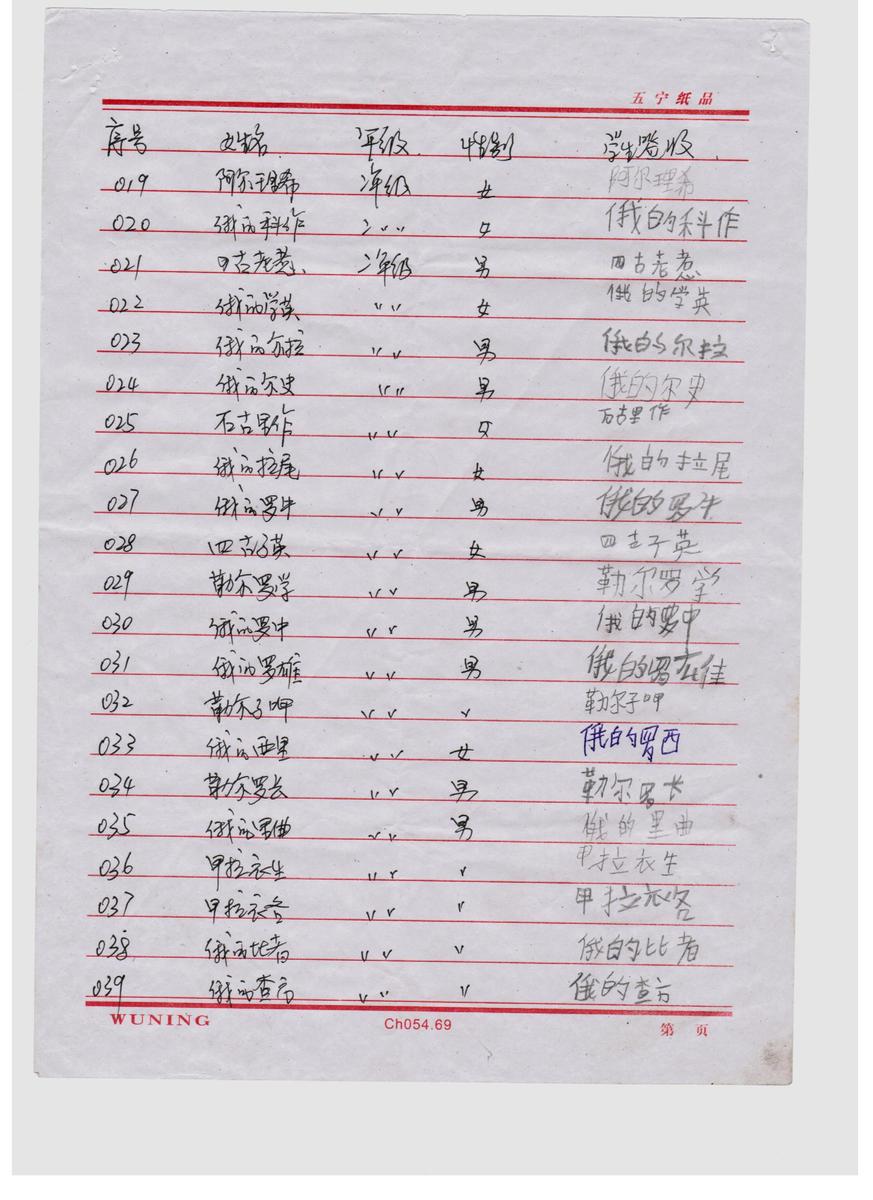 五宁纸品
序号 姓名 年级 性别 学生签收
019 阿尔理希 二年级 女 阿尔理希
020 俄的科作 〃〃 女 俄的科作
021 四古老惹 二年级 男 四古老惹
022 俄的学英 〃〃 女 俄的学英
023 俄的尔拉 〃〃 男 俄的尔拉
024 俄的尔史 〃〃 男 俄的尔史
025 石古里作 〃〃 女 石古里作
026 俄的拉尾 〃〃 女 俄的拉尾
027 俄的罗牛 〃〃 男 俄的罗牛
028 四古子英 〃〃 女 四古子英
029 勒尔罗学 〃〃 男 勒尔罗学
030 俄的罗中 〃〃 男 俄的罗中
031 俄的罗雄 〃〃 男 俄的罗雄
032 勒尔子呷 〃〃 〃 勒尔子呷
033 俄的西里 〃〃 女 俄的罗西
034 勒尔罗长 〃〃 男 勒尔罗长
035 俄的里曲 〃〃 男 俄的里曲
036 甲拉衣生 〃〃 〃 甲拉衣生
037 甲拉衣各 〃〃 〃 甲拉衣各
038 俄的比者 〃〃 〃 俄的比者
039 俄的查方 〃〃 〃 俄的查方
WUNING Ch054.69 第 页